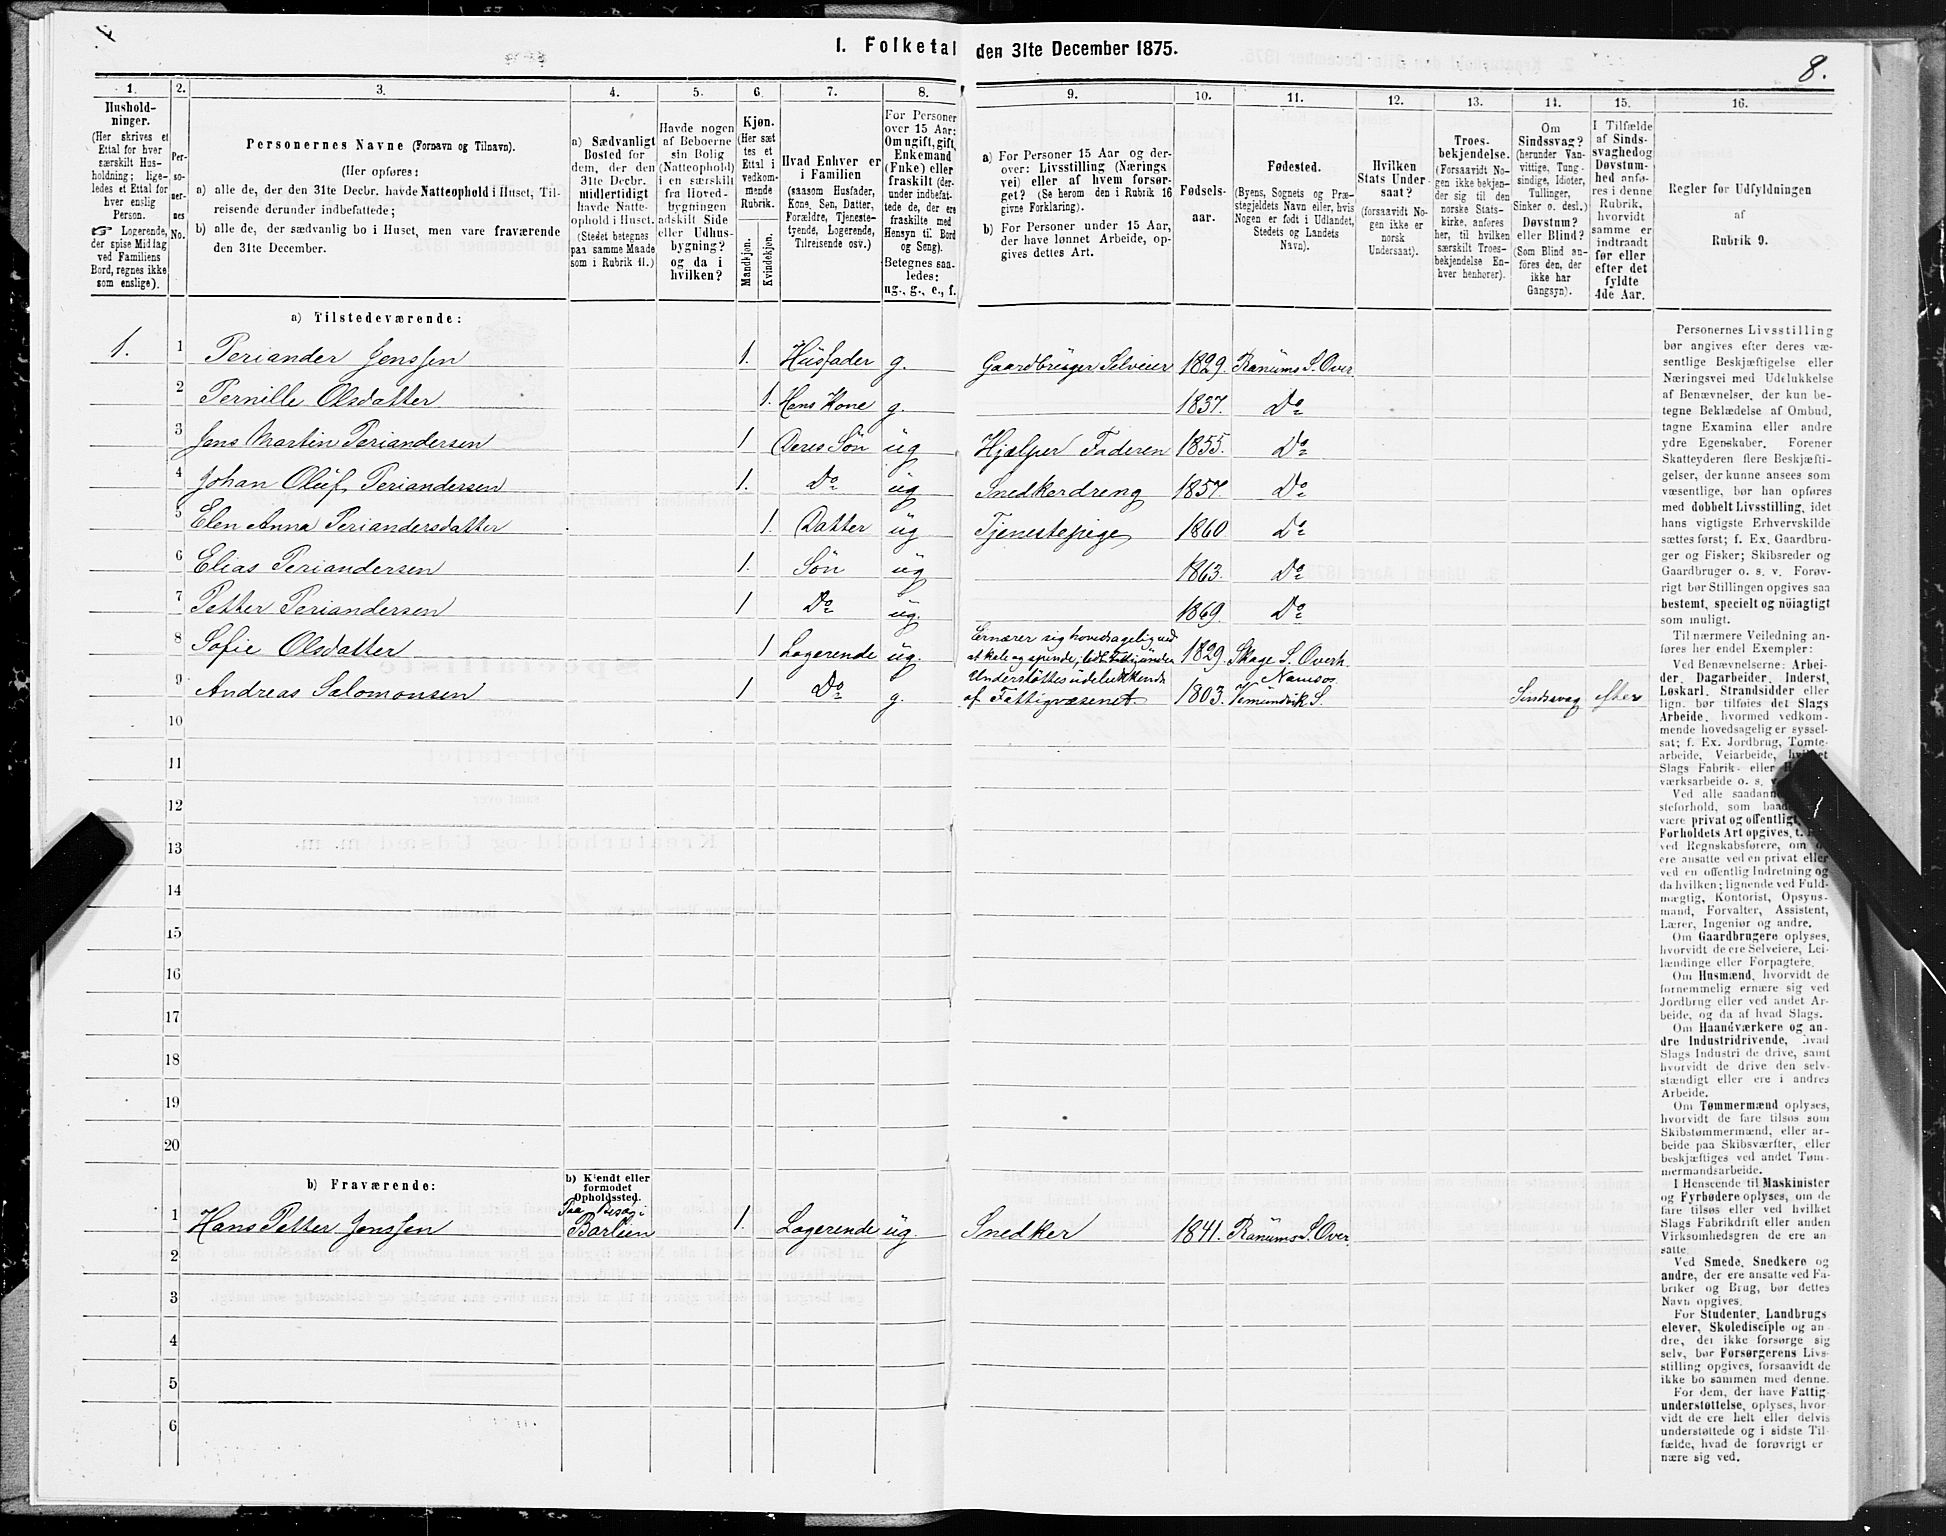 1. Folketal den 31te December 1875.
8.
1.
Hushold-
ninger.
(Her skrives et
Ettal for hver
særskilt Hus-
holdning; lige-
ledes et Ettal for
hver enslig
Person.
☞ Logerende,
der spise Middag
ved Familiens
Bord, regnes ikke
som enslige).
2.
Per-
so-
ner-
nes
No.
3.
Personernes Navne (Fornavn og Tilnavn).
(Her opføres:
a) alle de, der den 31te Decbr. havde Natteophold i Huset, Til-
reisende derunder indbefattede;
b) alle de, der sædvanlig bo i Huset, men vare fraværende
den 31te December.
4.
a) Sædvanligt
Bosted for
dem, der den
31te Decbr.
midlertidigt
havde Natte-
ophold i Huset.
(Stedet betegnes
paa samme Maade
som i Rubrik 11.)
5.
Havde nogen
af Beboerne
sin Bolig
(Natteophold)
i en særskilt
fra Hoved-
bygningen
adskilt Side
eller Udhus-
bygning?
og da i
hvilken?
6.
Kjøn.
(Her sæt
tes et
Ettal i
vedkom-
mende
Rubrik.
Mandkjøn.
Kvindekjøn.
7.
Hvad Enhver er
i Familien
(saasom Husfader,
Kone, Søn, Datter,
Forældre, Tjeneste-
tyende, Logerende,
Tilreisende osv.)
8.
For Personer
over 15 Aar:
Om ugift, gift,
Enkemand
(Enke) eller
fraskilt (der-
under indbefat-
tede de, der ere
fraskilte med
Hensyn til Bord
og Seng).
Betegnes saa-
ledes:
ug., g., e., f.
9.
a) For Personer 15 Aar og der-
over: Livsstilling (Nærings
vei) eller af hvem forsør-
get? (Se herom den i Rubrik 16
givne Forklaring).
b) For Personer under 15 Aar,
der have lønnet Arbeide, op-
gives dettes Art.
10.
Fødsels-
aar.
11.
Fødested.
(Byens, Sognets og Præ-
stegjeldets Navn eller, hvis
Nogen er født i Udlandet,
Stedets og Landets
Navn).
12.
Hvilken
Stats Under
saat?
(forsaavidt No-
gen ikke er
norsk
Undersaat).
13.
Troes-
bekjendelse.
(Forsaavidt No-
gen ikke bekjen-
der sig til den
norske Stats-
kirke, anføres
her, til hvilken
særskilt Troes-
bekjendelse En-
hver henhører).
14.
Om
Sindssvag?
(herunder Van-
vittige, Tung-
sindige, Idioter,
Tullinger,
Sinker o. desl.)
Døvstum?
eller Blind?
(Som Blind an-
føres den, der
ikke har
Gangsyn).
15.
I Tilfælde
af Sinds-
svaghed og
Døvstum-
hed anfø-
res i denne
Rubrik,
hvorvidt
samme er
indtraadt
før eller
efter det
fyldte
4de Aar.
16.
Regler for Udfyldningen
af
Rubrik 9.
a) Tilstedeværende:
1. 1 Periander Jenssen 1. Husfader g. Gaardbruger Selveier 1829. Ranums S. Over
2 Pernille Olsdatter 1. Hans Kone g. 1837. Do
3 Jens Martin Periandersen 1 Deres Søn ug Hjælper Faderen 1855. Do
4 Johan Oluf Periandersen 1. Do ug Snedkerdreng 1857. Do
5 Elen Anna Periandersdatter 1. Datter ug Tjenestepige 1860 Do
6 Elias Periandersen 1. Søn ug 1863. Do
7 Petter Periandersen 1 Do ug. 1869. Do
8 Sofie Olsdatter 1 Logerende ug. Ernærer sig hovedsagelig ved
1829. Skage S. Overh.
9 Andreas Salomonsen 1 Do g. Understøttes udelukkende
af Fattigvæsenet. 1803. Namsos
Vemundvik S. Sindssvag efter
10
11
12
13
14
15
16
17
18
19
20
b) Fraværende:
b) Kjendt eller
formodet
Opholdssted.
1 Hans Petter Jenssen Paa Besøg i
Barlien 1. Logerende ug. Snedker 1841. Ranums S. Over
2
3
4
5
6
Personernes Livsstilling
bør angives efter deres væ-
sentlige Beskjæftigelse eller
Næringsvei med Udelukkelse
af Benævnelser, der kun be-
tegne Beklædelse af Ombud,
tagne Examina eller andre
ydre Egenskaber. Forener
Skatteyderen flere Beskjæfti-
gelser, der kunne ansees som
væsentlige, bør han opføres
med dobbelt Livsstilling, idet
hans vigtigste Erhvervskilde
sættes først; f. Ex. Gaardbru-
ger og Fisker; Skibsreder og
Gaardbruger o. s. v. Forøv-
rigt bør Stillingen opgives saa
bestemt, specielt og nøiagtigt
som muligt.
Til nærmere Veiledning an-
føres her endel Exempler:
Ved Benævnelserne: Arbei-
der, Dagarbeider, Inderst,
Løskarl, Strandsidder eller
lign. bør tilføies det Slags
Arbeide, hvormed vedkom-
mende hovedsagelig er syssel-
sat; f. Ex. Jordbrug, Tomte-
arbeide, Veiarbeide, hvilket
Slags Fabrik- eller
værksarbeide o. s. v.
Ved alle saadanne
steforhold, som baade
være privat og offentligt,
Forholdets Art opgives, t.
ved Regnskabsførere, om
ere ansatte ved en privat eller
ved en offentlig Indretning og
da hvilken; lignende ved Fuld-
mægtig, Kontorist, Opsyns-
mand, Forvalter, Assistent,
Lærer, Ingeniør og andre.
Om Gaardbrugere oplyses,
hvorvidt de ere Selveiere, Lei-
lændinge eller Forpagtere.
Om Husmænd, hvorvidt de
fornemmelig ernære sig ved
Jordbrug eller ved andet Ar-
beide, og da af hvad Slags.
Om Haandværkere og an-
dre Industridrivende, hvad
Slags Industri de drive, samt
hvorvidt de drive den selv-
stændigt eller ere i andres
Arbeide.
Om Tømmermænd oplyses,
hvorvidt de fare tilsøs som
Skibstømmermænd, eller ar-
beide paa Skibsværfter, eller
beskjæftiges ved andet Tøm-
mermandsarbeide.
I Henseende til Maskinister
og Fyrbødere oplyses, om de
fare tilsøs eller ved hvilket
Slags Fabrikdrift eller anden
Virksomhedsgren de ere an-
satte.
Ved Smede, Snedkere og
andre, der ere ansatte ved Fa-
briker og Brug, bør dettes
Navn opgives.
For Studenter, Landbrugs
elever, Skoledisciple og an-
dre, der ikke forsørge sig
selv, bør Forsørgerens Livs-
stilling opgives, forsaavidt de
ikke bo sammen med denne.
For dem, der have Fattig-
understøttelse, oplyses, hvor
vidt de ere helt eller delvis
understøttede og i sidste Til-
fælde, hvad de forøvrigt er
nære sig ved.